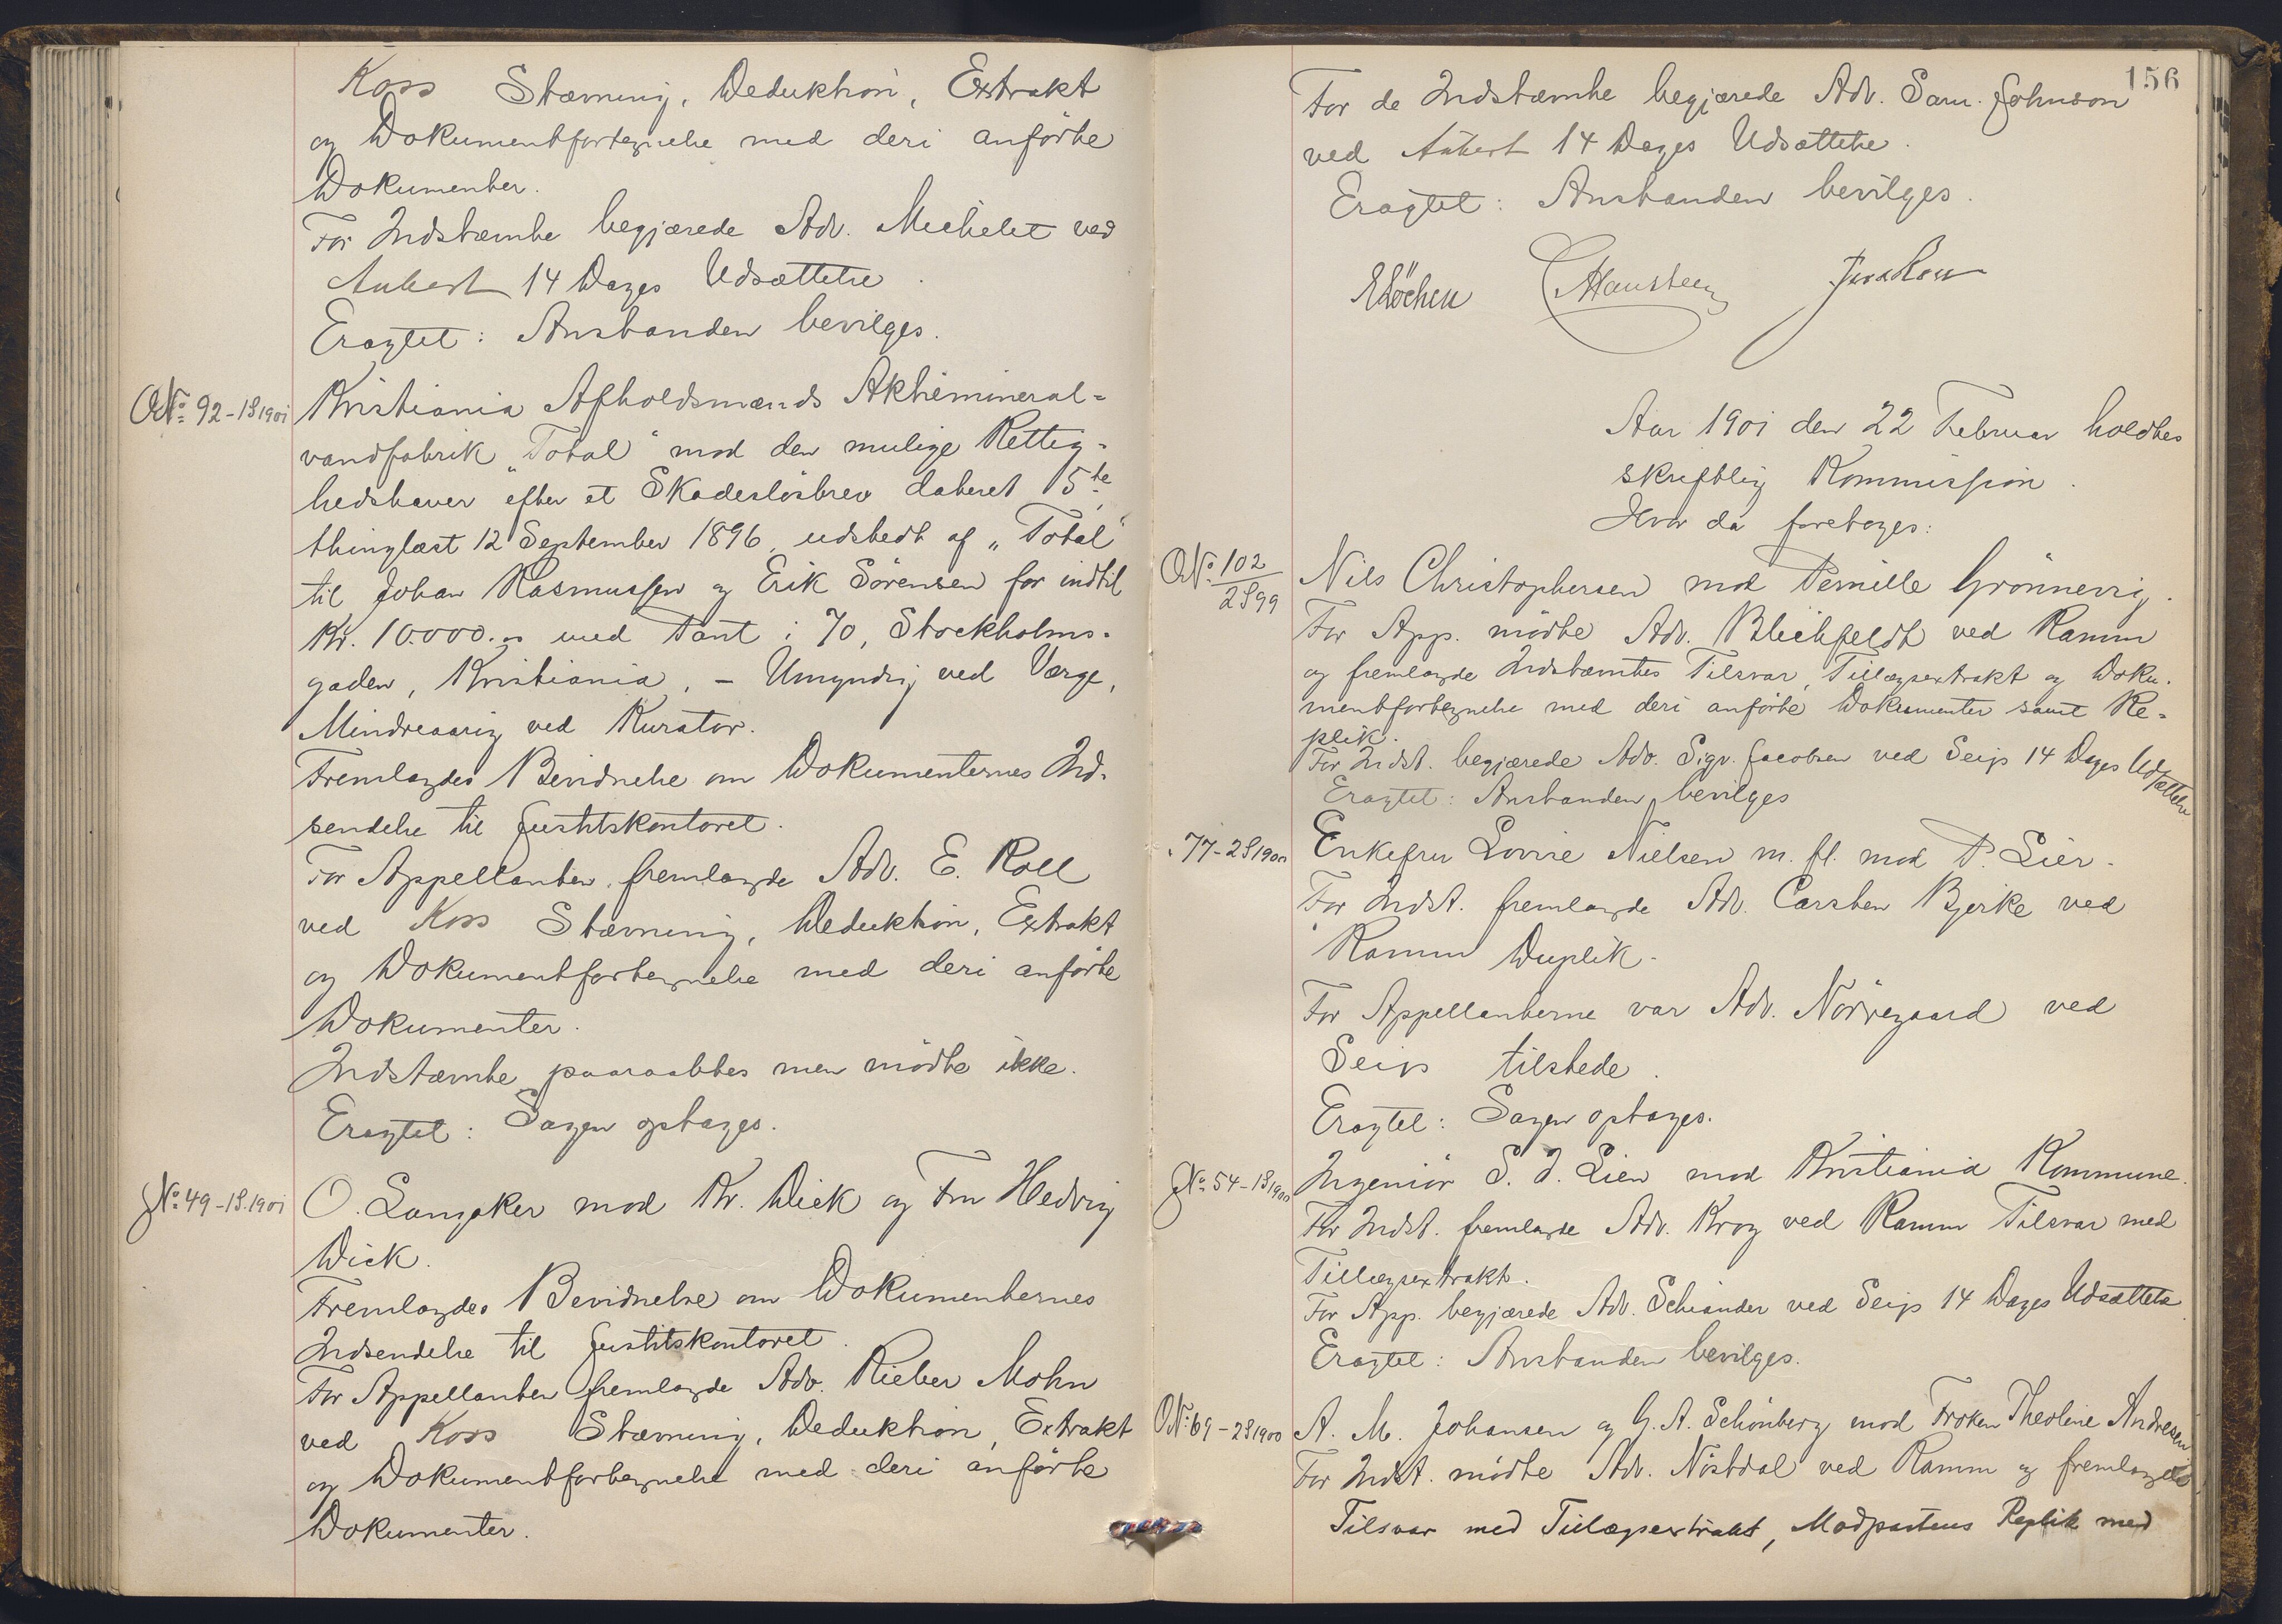 Koss Stævning, Deduktion, Extrakt
og Dokumentfortegnelse med deri anførte
Dokumenter.
For Indstævnte begjærede Adv. Michelet ved
Aubert 14 Dages Udsættelse.
Eragtet: Anstanden bevilges.
No 92-1S1901
Kristiania Afholdsmænds Aktiemineral-
vandfabrik "Total" mod den mulige Rettig-
hedshaver efter et Skadesløsbrev dateret 5te,
thinglæst 12 September 1896, udstedt af "Total"
til Johan Rasmussen og Erik Sörensen for indtil
Kr. 10.000.00 med Pant i 70, Stockholms-
gaden, Kristiania, - Umyndig ved Værge,
Mindreaarig ved Kurator.
Fremlagdes Bevidnelse om Dokumenternes Ind-
sendelse til Justitskontoret.
For Appellanten fremlagde Adv. E. Roll
ved Koss Stævning, Deduktion, Extrakt
og Dokumentfortegnelse med deri anførte
Dokumenter.
Indstævnte paaraabtes men mödte ikke.
Eragtet: Sagen optages.
No 49-1S.1901
O. Langaker mod Kr. Wick og Fru Hedvig
Wick.
Fremlagdes Bevidnelse om Dokumenternes
Indsendelse til Justitskontoret.
For Appellanten fremlagde Adv. Rieber Mohn
ved Koss Stævning, Deduktion, Extrakt
og Dokumentfortegnelse med deri anförte
Dokumenter.
156
For de Indstævnte begjærede Adv. Sam. Johnson
ved Aubert 14 Dages Udsættelse.
Eragtet: Anstanden bevilges.
E Löchen Hansteen
Aar 1901 den 22 Februar holdtes
skriftlig Kommission.
Hvor da foretoges:
No 102
2S99
Nils Christophersen mod Pernille Grönnevig.
For App. mödte Adv. Blichfeldt ved Ramm
og fremlagde Indstævntes Tilsvar, Tillægsextrakt og Doku-
mentfortegnelse med deri anförte Dokumenter samt Re-
plik.
For Indst. begjærede Adv. Sigv. Jacobsen ved Seip 14 Dages Udsættelse
Eragtet: Anstanden bevilges
" 77-2S1900
Enkefru Lovise Nielsen m. fl. mod P. Lier.
For Indst. fremlagde Adv. Carsten Bjerke ved
Ramm Duplik.
For Appellanterne var Adv. Nörregaard ved
Seip tilstede.
Eragtet: Sagen optages.
No 54-1S1900
Ingeniör S. J. Lien mod Kristiania Kommune.
For Indst. fremlagde Adv. Krog ved Ramm Tilsvar med
Tillægsextrakt.
For App. begjærede Adv. Schiander ved Seip 14 Dages Udsættelse.
Eragtet: Anstanden bevilges.
No 69-2S1900
A. M. Johansen og G. A. Schönberg mod Fröken Theoline Andresen
For Indst. mödte Adv. Nöstdal ved Ramm og fremlagde
Tilsvar med Tillægsextrakt, Modpartens Replik med